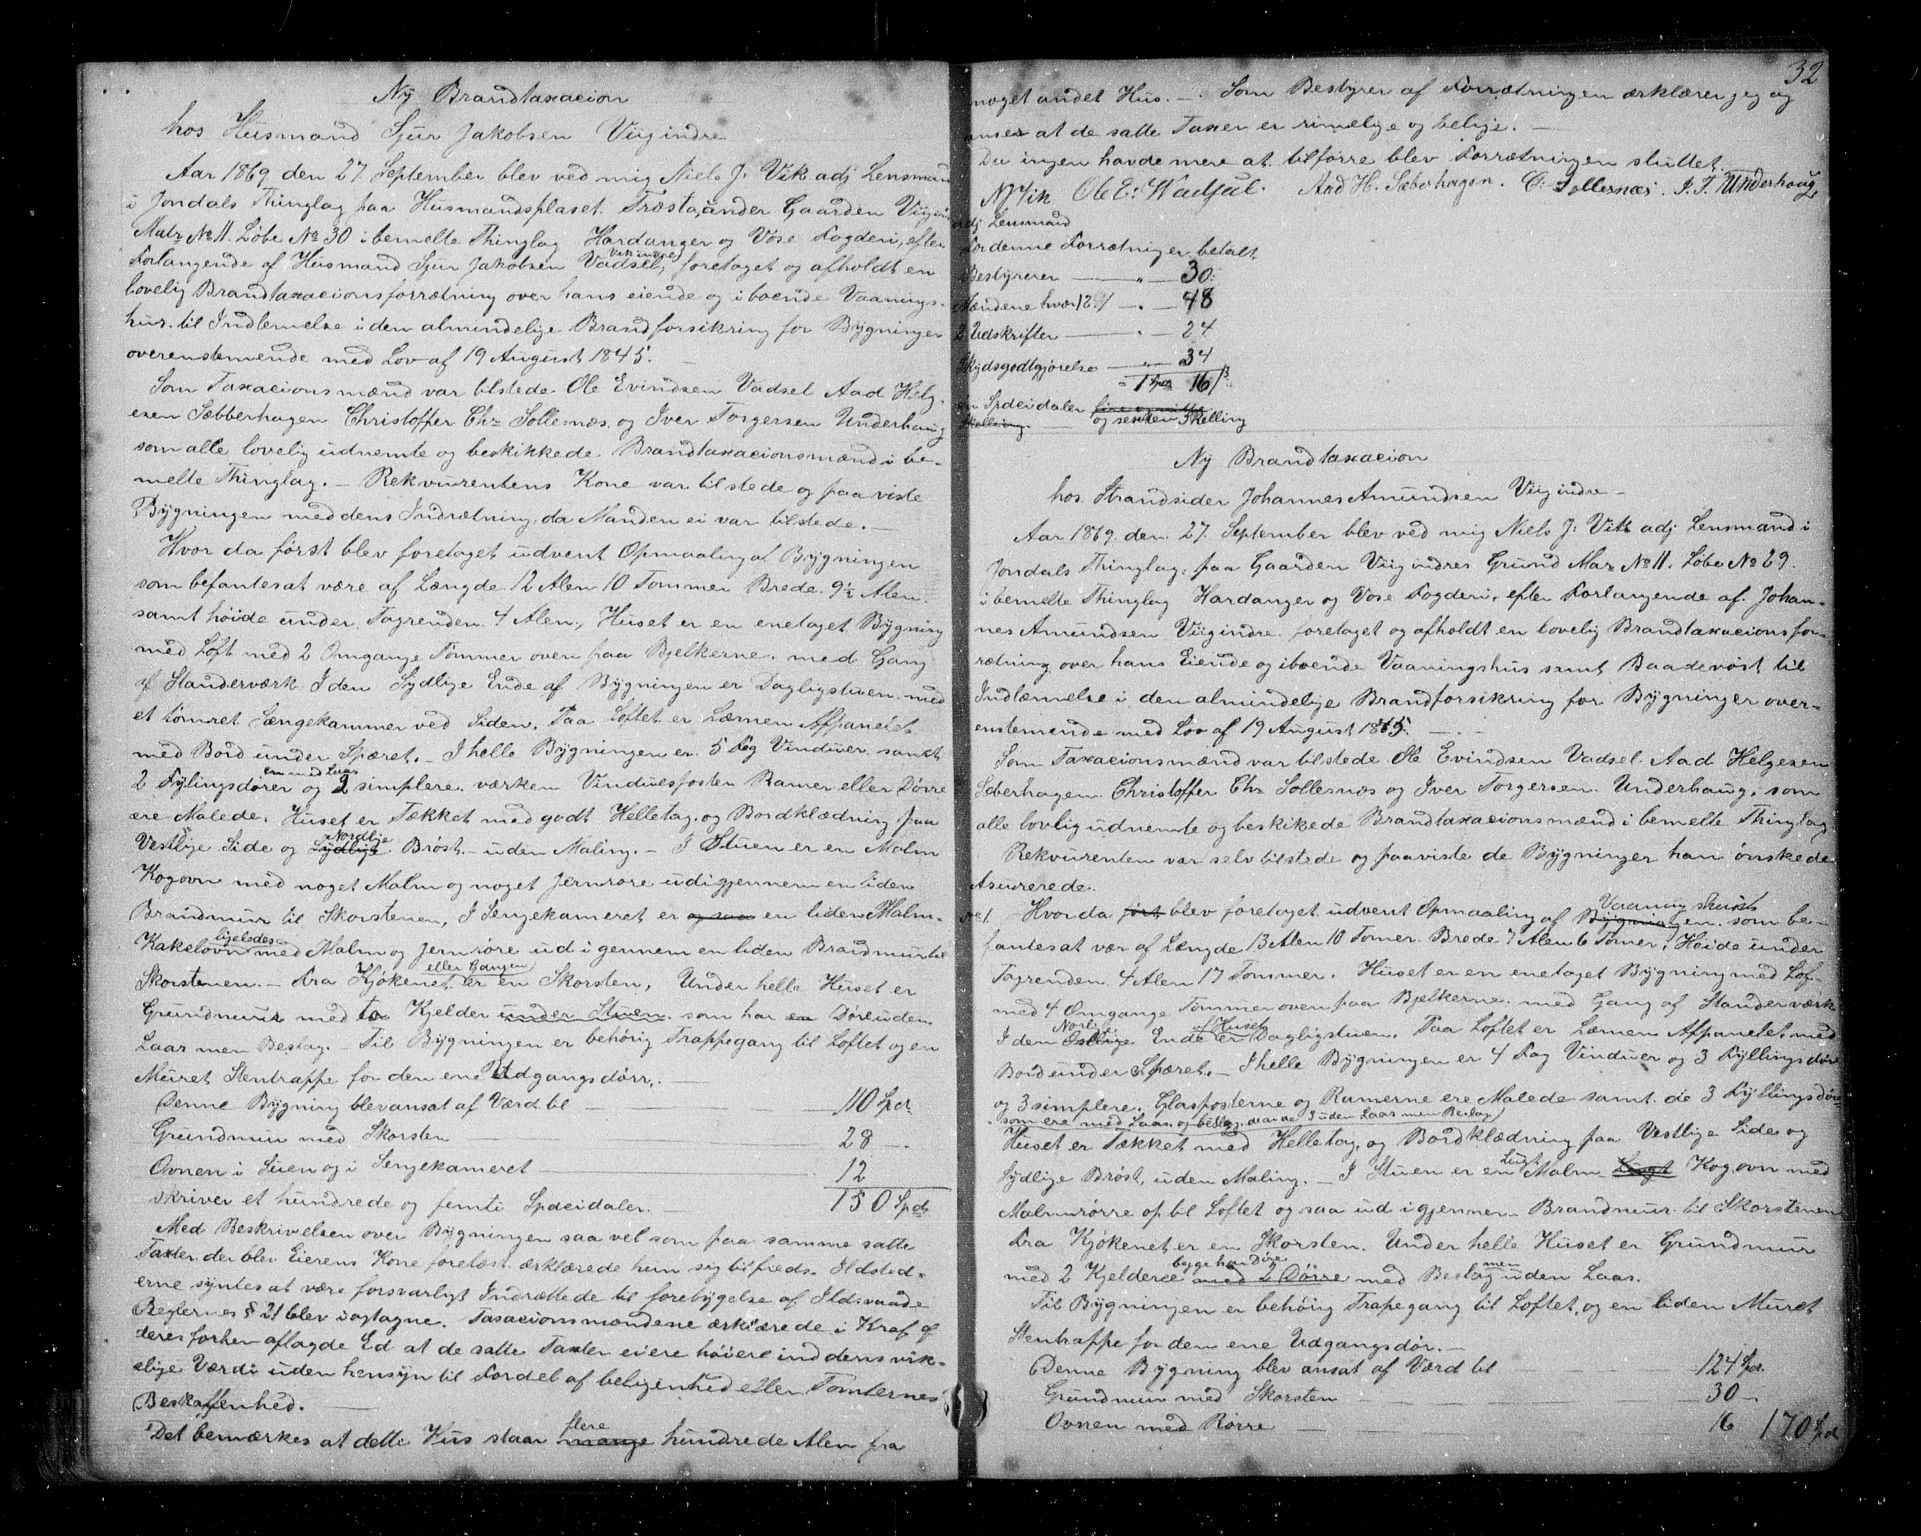 Ny Brandtaxacion
hos Husmand Sjur Jakobsen Viigindre
Aar 1869 den 27. September blev ved mig Niels J. Vik adj Lensmand
i Jondals Thinglag paa Husmandsplaset Træsta, under Gaarden Viigindre
Matr No 11. Løbe No 30 i bemelte Thinglag Hardanger og Vose Fogderi, efter
Forlangende af Husmand Sjur Jakobsen Vadsel, Vikindre foretaget og afholdt en
lovelig Brandtaxacionsforrætning over hans eiende og iboende Vaanings-
hus. til Indlemelse i den almindelige Brandforsikring for Bygninger
overenstemende med Lov af 19 August 1845. —
Som Taxacionsmænd var tilstede Ole Evindsen Vadsel Aad Helg-
esen Sæbberhagen Christoffer Chr Sollesnæs og Iver Torgersen Underhaug
som alle lovelig udnemte og beskikkede Brandtaxacionsmænd i be-
melte Thinglag. — Rekvirentens Kone var tilstede og paaviste
Bygningen med dens Indrætning, da Manden ei var tilstede. —
Hvor da først blev foretaget udvent Opmaaling af Bygningen
som befantes at være af Længde 12 Alen 10 Tommer Brede 9½ Alen
samt høide under Tagrenden 4 Alen, Huset er en enetaget Bygning
med Loft med 2 Omgange Tømmer oven paa Bjelkerne. med Gang
af Standerværk I den Sydlige Ende af Bygningen er Dagligstuen med
et tømret Sængekammer ved Siden. Paa Loftet er Læmen Afpanelet
med Bord under Spæret. — I helle Bygningen er 5 Fag Vinduer, samt
2 Fylingsdører en med Laas og 2 simplere. værken Vinduesposten Ramer eller Dørre
ere Malede. Huset er Tækket med godt Helletag, og Bordklædning paa
Vestlige Side og Sydlige Nordlige Brøst — uden Maling. — I Stuen er en Malm
Kogovn med noget Malm og noget Jernrøre ud igjennem en liden
Brandmur til Skorstenen, I Sengekameret er og saa en liden Malm-
Kakelovn ligelsdes med Malm og Jernrøre ud igennem en liden Brandmur til
Skorstenen. — Fra Kjøkenet eller Gangen er en Skorsten, Under helle Huset er
Grundmur med to Kjelder under Stuen. som har en Døre uden
Laas men Beslag. — Til Bygningen er behørig Trappegang til Loftet og en
Muret Stentrappe for den ene Udgangsdørr. —
Denne Bygning blev ansat af Værd til — 110 Spd
Grundmur med Skorsten — 28 —
Ovnen i Suen og i Sengekameret — 12
skriver et hundrede og femti Spdeidaler. — 150 Spd
Med Beskrivelsen over Bygningen saa vel som paa samme satte
Taxter der blev Eierens Kone forelæst ærklærede hun sig tilfreds. Ildsted-
erne syntes at være forsvarligt Indrættede til forebygelse af Ildsvaade
Reglernes § 21 blev iagtagne. Taxacionsmændene ærklærede i Kraf af
deres forhen aflagde Ed at de satte Taxter ei ere høiere ind dens vik-
elige Værdi uden hensyn til Fordel af beligenhed eller Tomternes
Beskaffenhed. —
Det bemærkes at dette Hus staar mange flere hundrede Alen fra
32
noget andet Hus. —. Som Bestyrer af Forrætningen ærklærer jeg og
anser at de satte Taxer er rimelige og belige. —
Da ingen havde mere at tilførre blev Forrætningen sluttet.
NJ Vik Ole E: Wadsæl. Aad H. Sæberhagen. C: Sollesnæs. I. T. Underhaug
adj Lensmand
For denne Forrætninger betalt
Bestyrerer — " — 30
Mændene hver 12 β — " — 48
2 Udskrifter — " — 24
Skydsgodtgjørelse — " — 34
1 Spd 16 β
en Spdeidaler fire og
Skelling og sexten Skelling
Ny Brandtaxacion
hos Strandsider Johannes Amundsen Viigindre —
Aar 1869. den 27. September blev ved mig Niels J: Vik adj Lensmand i
Jondals Thinglag: paa Gaarden Viigindres Grund Mar No 11. Løbe No 29.
i bemelte Thinglag Hardanger og Vose Fogderi, efter Forlangende af Johan-
nes Amundsen Viigindre foretaget og afholdt en lovelig Brandtaxacionsfor-
rætning over hans Eiende og iboende Vaaningshus samt Baadenøst til
Indlæmelse i den almindelige Brandforsikring for Bygninger over-
enstemende med Lov af 19 August 1845. —
Som Taxacionsmænd var tilstede Ole Evindsen Vadsel. Aad Helgesen
Sæberhagen. Christoffer Chr Sollesnæs og Iver Torgersen Underhaug. som
alle lovlig udnemte og beskikede Brandtaxacionsmænd i bemelte Thinglag
Rekvurenten var selv tilstede og paaviste de Bygninger han ønskede
Asurerede.
No 1. Hvor da ført blev foretaget udvent Opmaaling af Bygningen Vaaningshuset som be-
fantes at vær af Længde 13 Alen 10 Tomer. Brede 7 Alen 6 Tomer. Høide under
Tagrenden 4 Alen 17 Tommer. Huset er en enetaget Bygning med Lof
med 4 Omgange Tømmer oven paa Bjelkerne. med Gang af Standerværk
I den Norli Ende af Huset er Dagligstuen. Paa Loftet er Læmen Afpanelet med
Bord under Spæret. — I helle Bygningen er 4 Fag Vinduer og 3 Fyllingsdøre
og 3 simplere. Glasposterne og Ramerne ere Malede samt de 3 Fyllingsdøre
som ere med Laas og beslag, dan de 3 uden Laas men Beslag
Huset er Tækket med Helletag, og Bordklædning paa Vestlige Side og
Sydlige Brøst, uden Maling. — I Stuen er en Lugt Malm Lugt Kogovn med
Malmrørre op til Loftet og saa ud igjennem Brandmur til Skorstenen
Fra Kjøkenet er en Skorsten. Under helle Huset er Grundmur
med 2 Kjeldere begge har Døre med 2 Dørre med Beslag men uden Laas.
Til Bygningen er behørig Trapegang til Loftet, og en liden Muret
Stentrappe for den ene Udgangsdør. —
Denne Bygning blev ansat af Værd til — 124 Spd.
Grundmur med Skorsten — 30 —
Ovnen med Rørre — 16 170 Spd